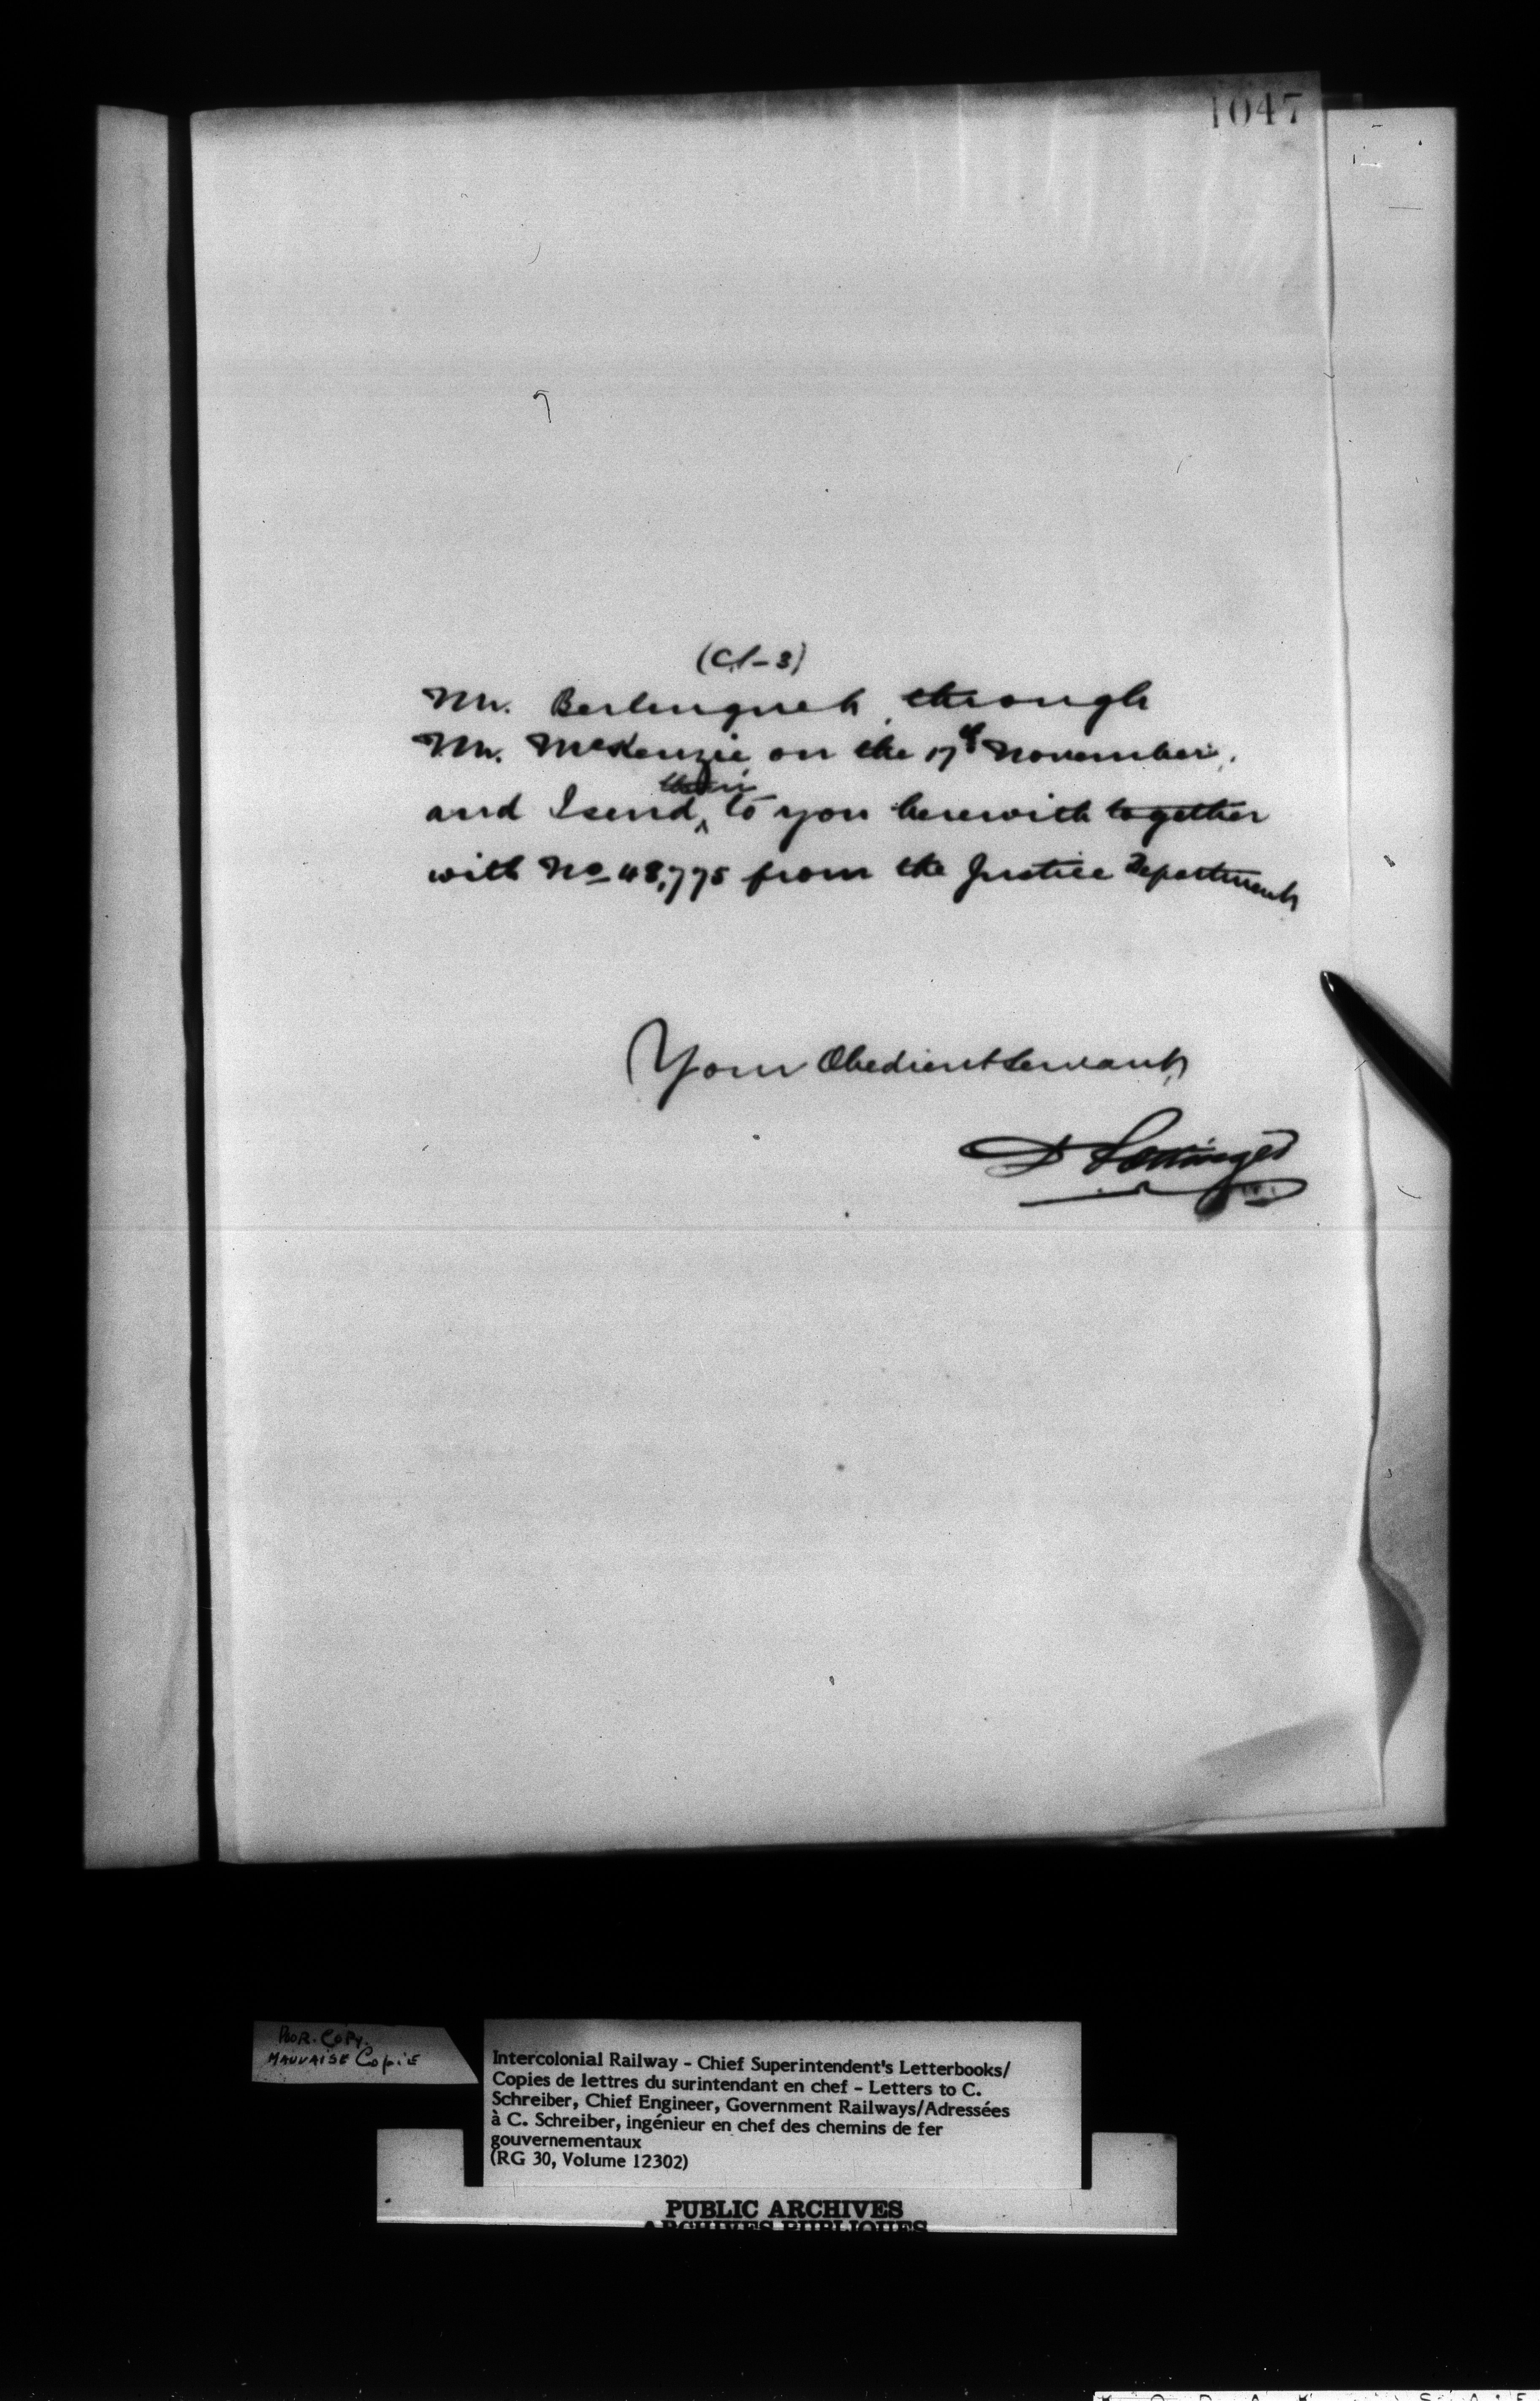 1047
(C.S-3)
Mr. Berlinguet through
Mr. McKenzie on the 17th November,
and I send them to you herewith together
with No 48,775 from the Justice Department
Your Obedient Servant,
D Pottinger
POOR. COPY.
MAUVAISE COPIE
Intercolonial Railway - Chief Superintendent's Letterbooks/
Copies de lettres du surintendant en chef - Letters to C.
Schreiber, Chief Engineer, Government Railways/Adressées
à C. Schreiber, ingénieur en chef des chemins de fer
gouvernementaux
(RG 30, Volume 12302)
PUBLIC ARCHIVES
ARCHIVES PUBLIQUES